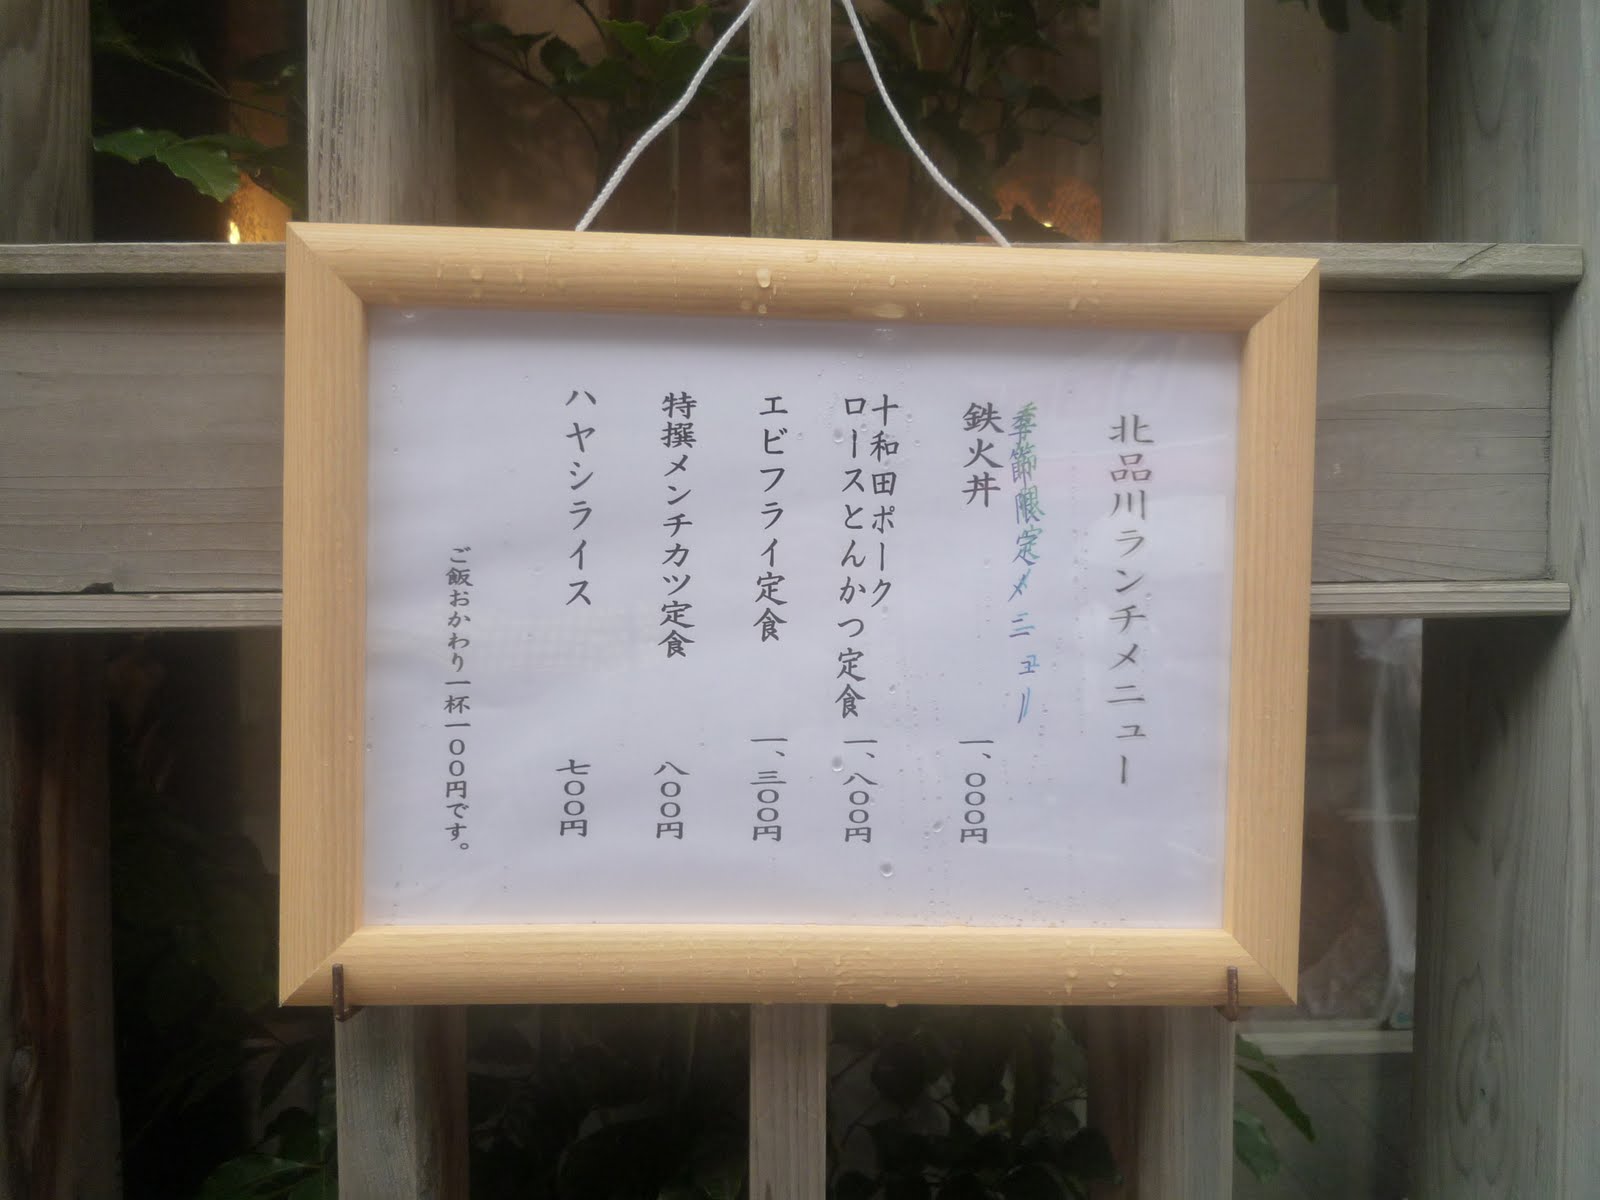 北品川ランチメニュー
季節限定メニュー
鉄火丼 一、〇〇〇円
十和田ポーク
ロースとんかつ定食 一、八〇〇円
エビフライ定食 一、三〇〇円
特撰メンチカツ定食 八〇〇円
ハヤシライス 七〇〇円
ご飯おかわり一杯一〇〇円です。